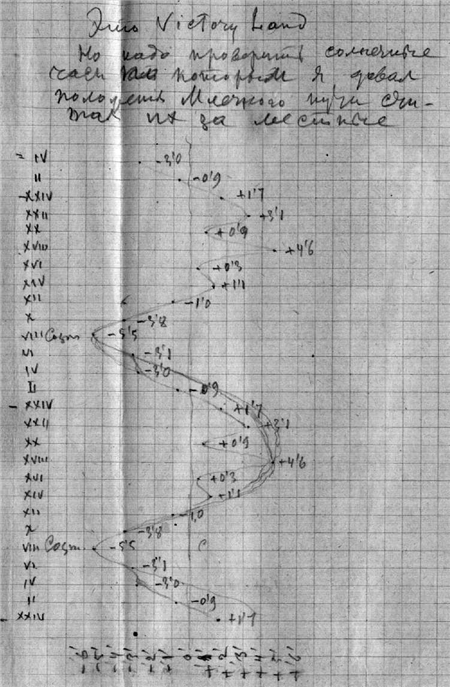 Это Victory Land
Но надо проверить солнечные
часы которым я давал
Млечного пути счи-
тая их за местные
IV -3,0
II -0,9
XXIV +1,7
XXII +3,1
XX +0,9
XVIII +4,6
XVI +0,3
XIV +1,1
XII -1,0
X -3,8
VIII Cosm -5,5
VI -3,1
IV -3,0
II -0,9
XXIV +1,7
XXII +3,1
XX +0,9
XVIII +4,6
XVI +0,3
XIV +1,1
XII -1,0
X -3,8
VIII Cosm -5,5
VI -3,1
IV -3,0
II -0,9
XXIV +1,7